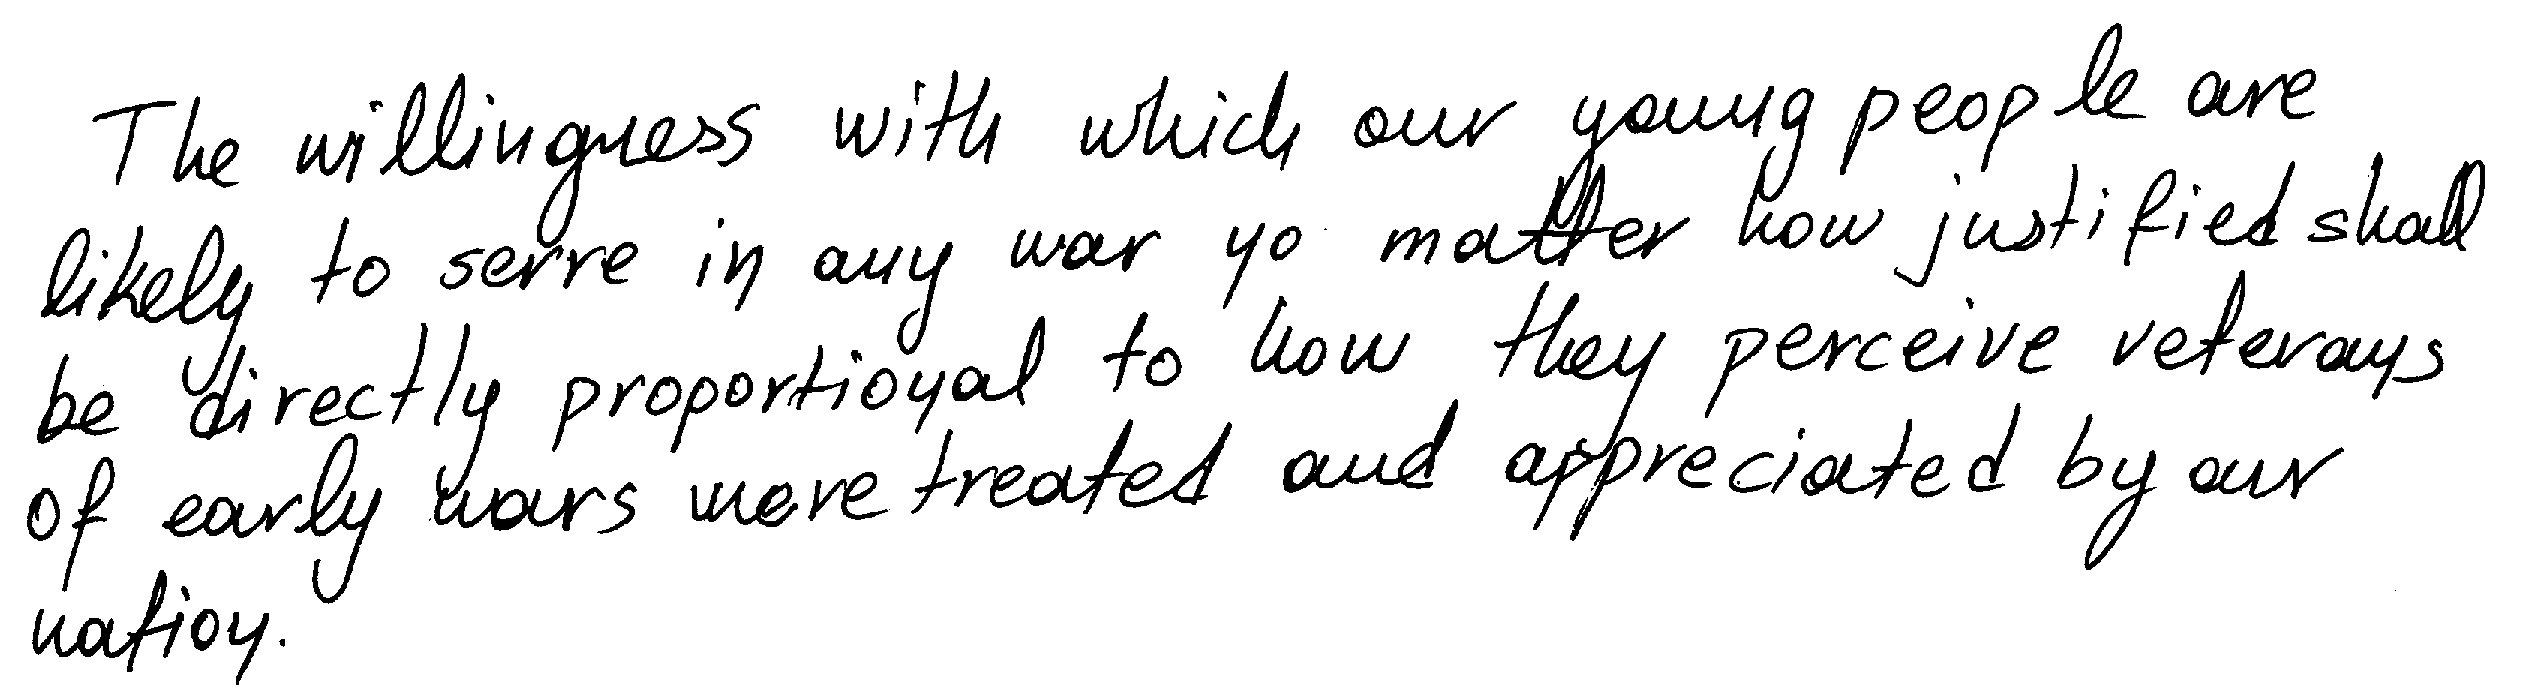 The willingness with which our young people are
likely to serve in any war no matter how justified shall
be directly proportional to how they perceive veterans
of early wars were treated and appreciated by our
nation.